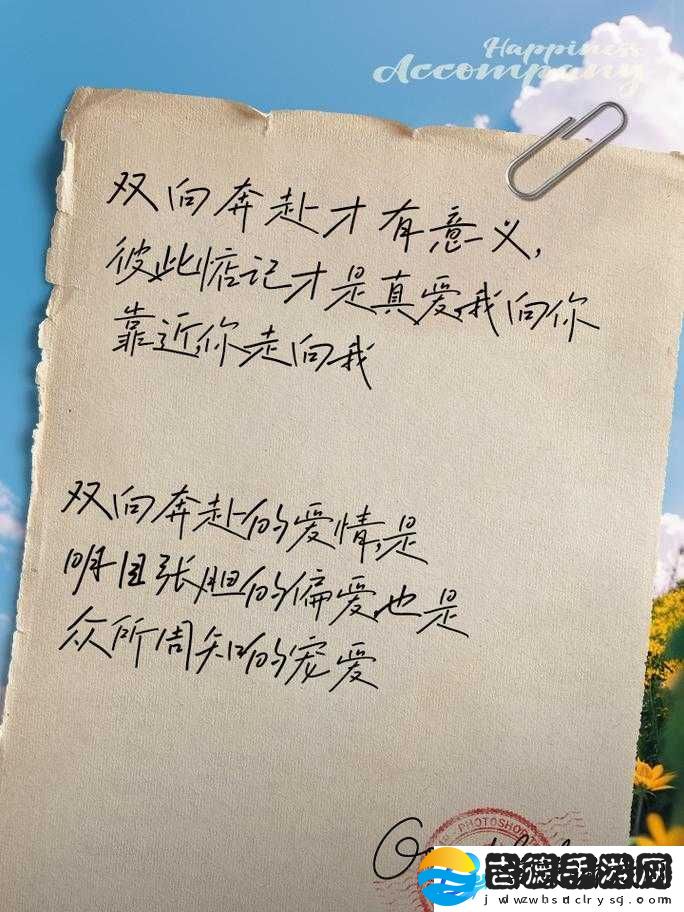 Happiness
Accompany
双向奔赴才有意义,
彼此惦记才是真爱,我向你
靠近,你走向我
双向奔赴的爱情,是
明目张胆的偏爱,也是
众所周知的宠爱
PHOTOSHOP